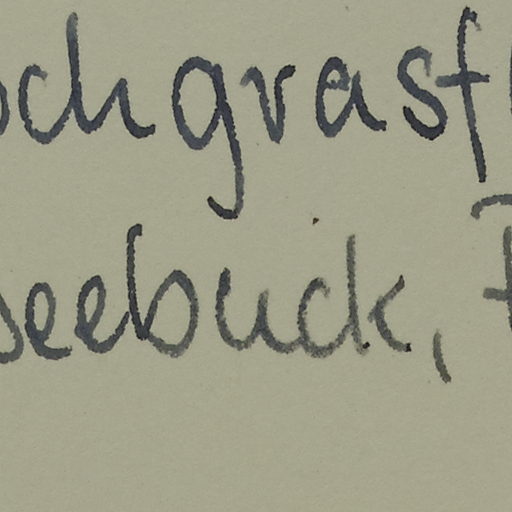 ochgrasf
Seebuck, F